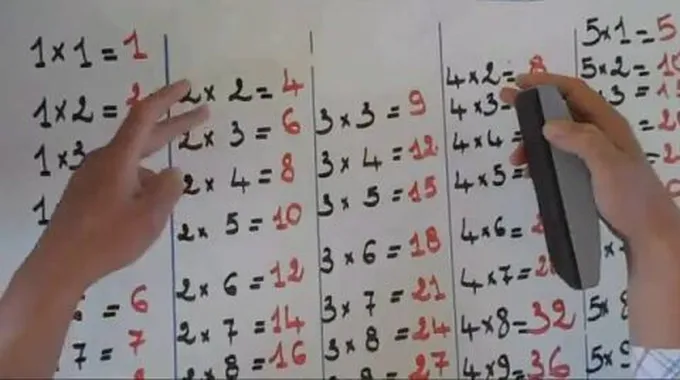 1 × 1 = 1
1 × 2 =
1 × 3
= 6
7 = 7
2 × 2 = 4
2 × 3 = 6
2 × 4 = 8
2 × 5 = 10
2 × 6 = 12
2 × 7 = 14
2 × 8 = 16
3 × 3 = 9
3 × 4 = 12
3 × 5 = 15
3 × 6 = 18
3 × 7 = 21
3 × 8 = 24
27
4 × 2 = 8
4 × 3 =
4 × 4 =
4 × 5 =
4 × 6 =
4 × 7 =
4 × 8 = 32
4 × 9 = 36
5 × 1 = 5
5 × 2 = 10
× 3 =
5 × 8
5 × 9